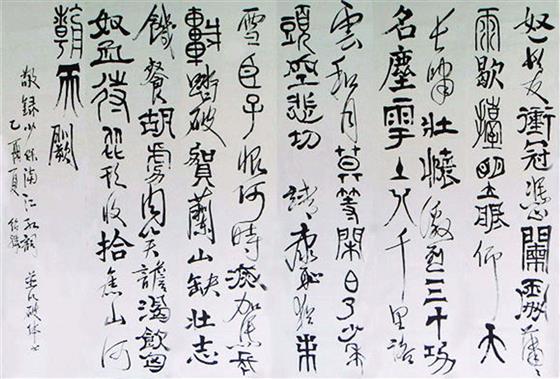 怒髮衝冠憑闌處瀟〻
雨歇擡望眼仰天
長嘯壯懷激烈三十功
名塵與土八千里路
雲和月莫等閒白了少年
頭空悲切 靖康恥猶未
雪臣子恨何時滅駕長
車踏破賀蘭山缺壯志
饑餐胡虜肉笑談渴飲匈
奴血待從頭收拾舊山河
朝天闕
敬錄少保滿江紅詞